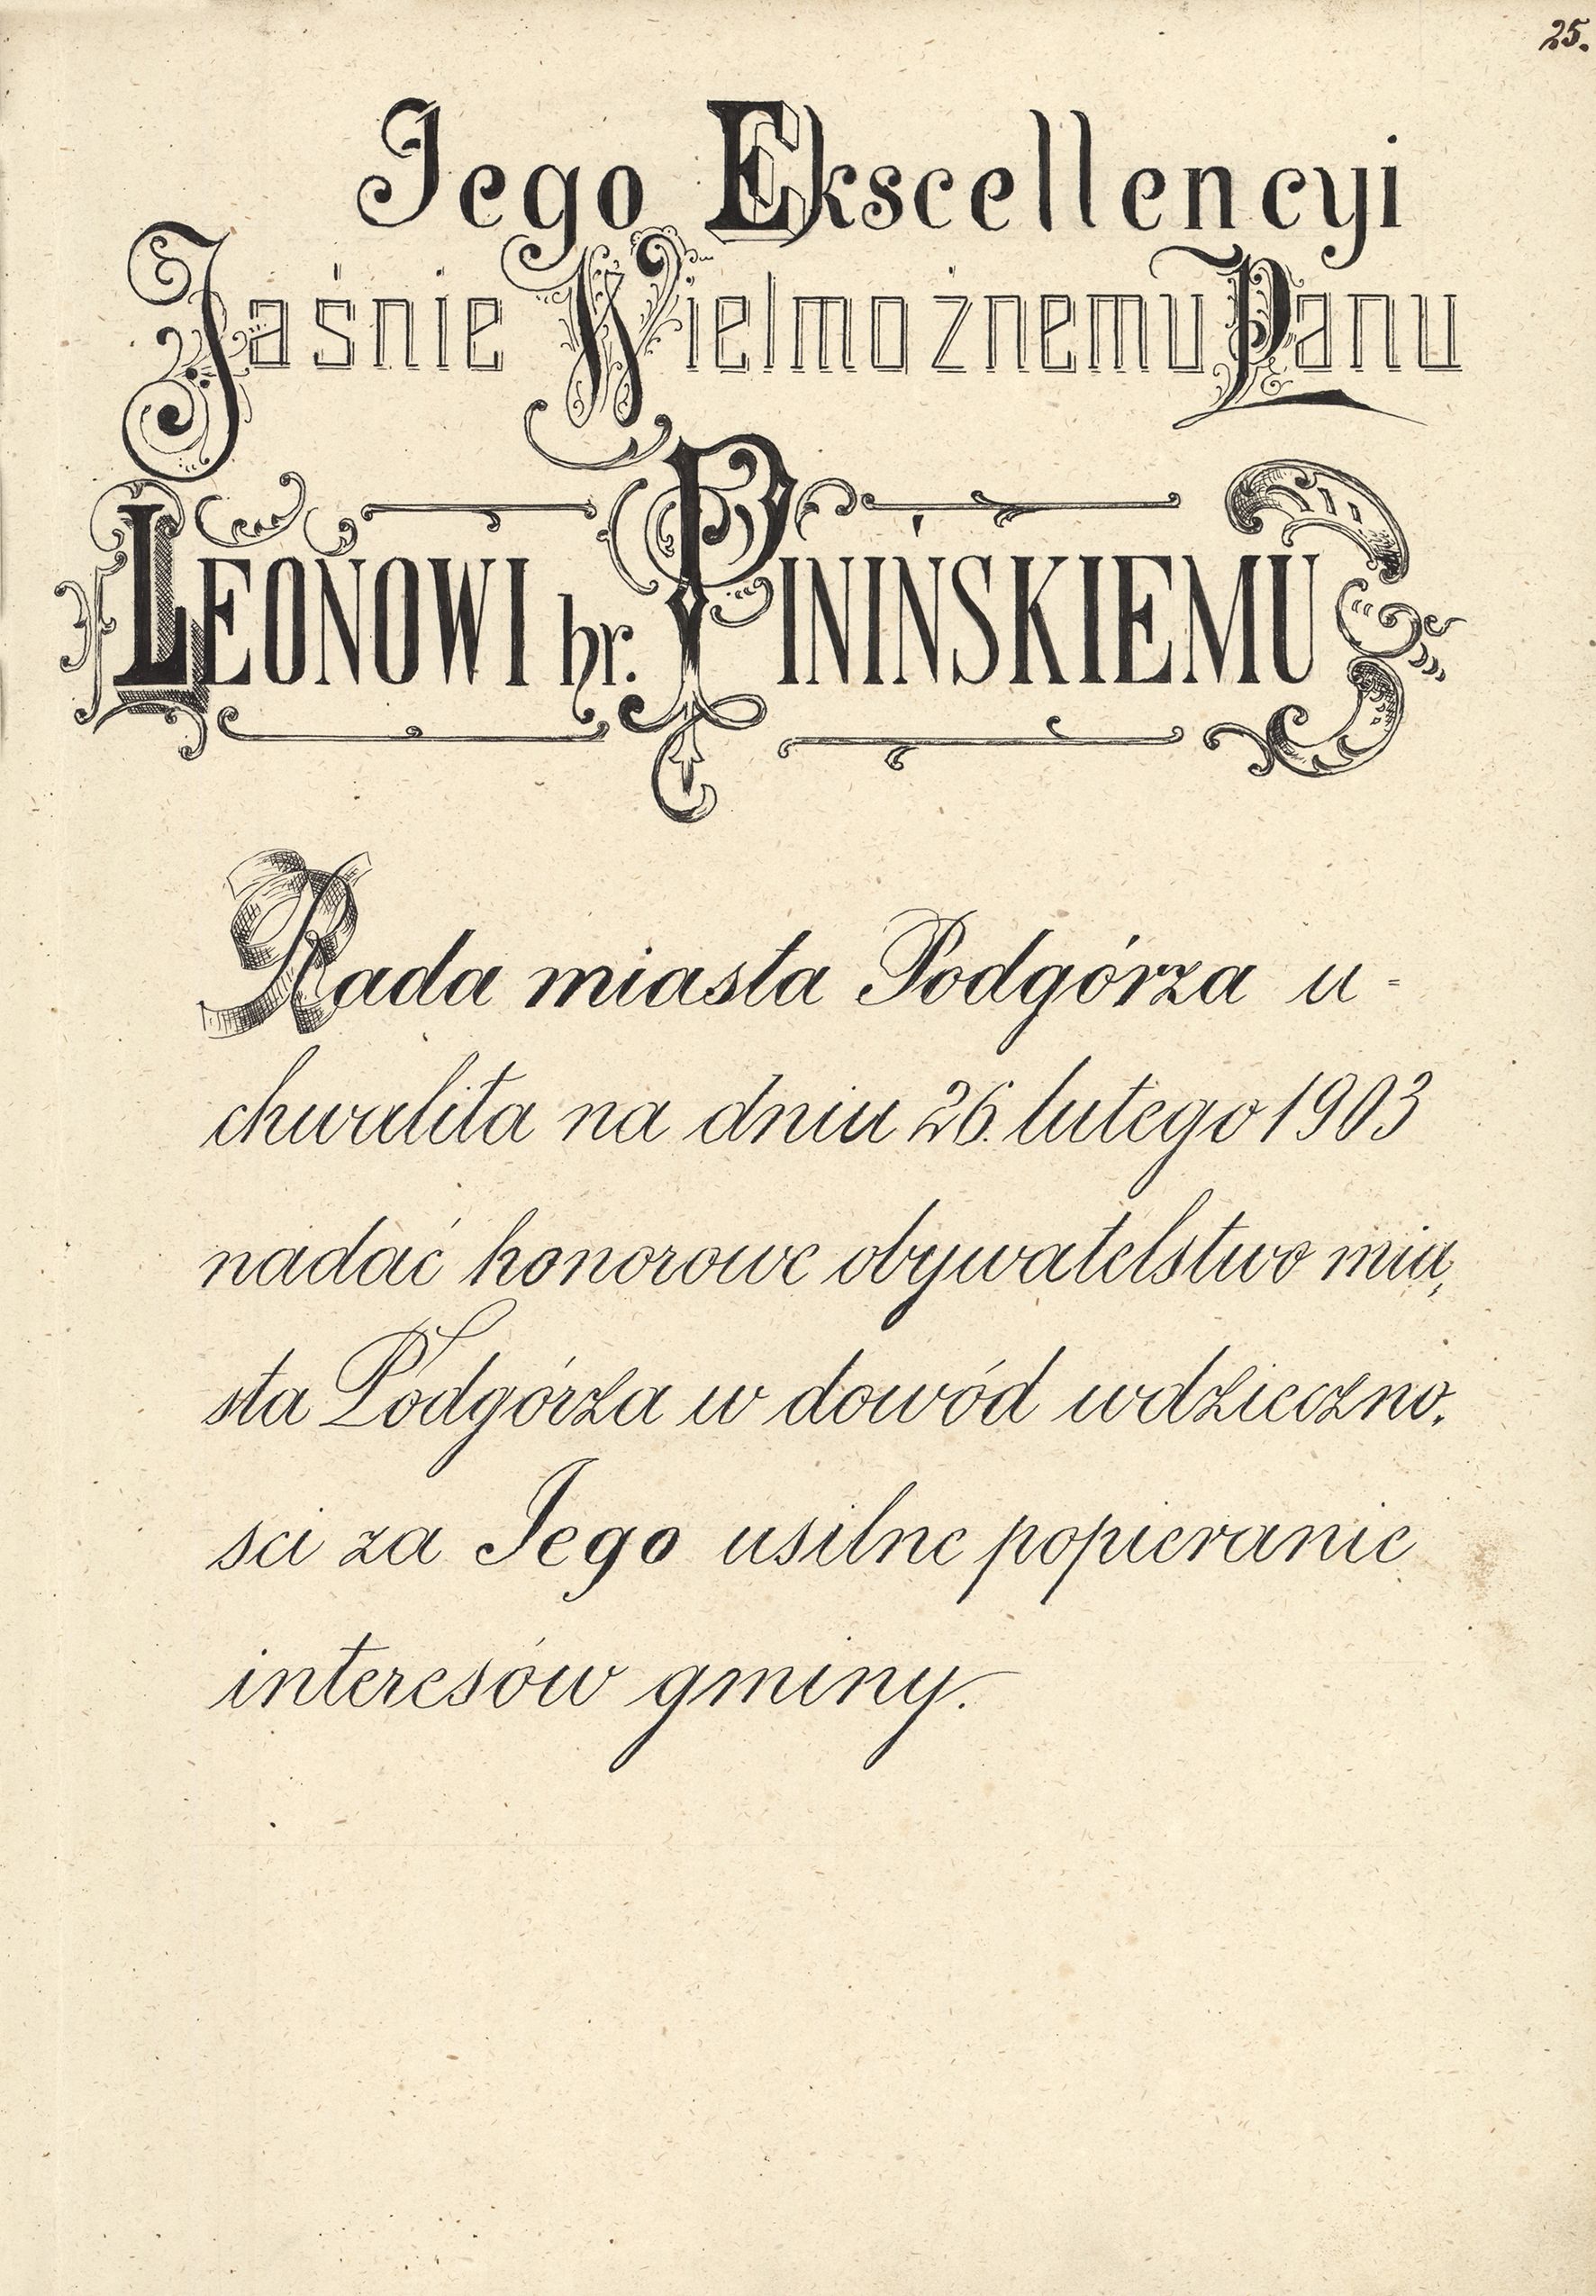 25.
Jego Ekscellencyi
Jaśnie Wielmożnemu Panu
LEONOWI hr. PINIŃSKIEMU
Rada miasta Podgórza u-
chwaliła na dniu 26. lutego 1903
nadać honorowe obywatelstwo mia,
sta Podgórza w dowód wdzieczno,
sci za Jego usilne popieranie
interesów gminy.